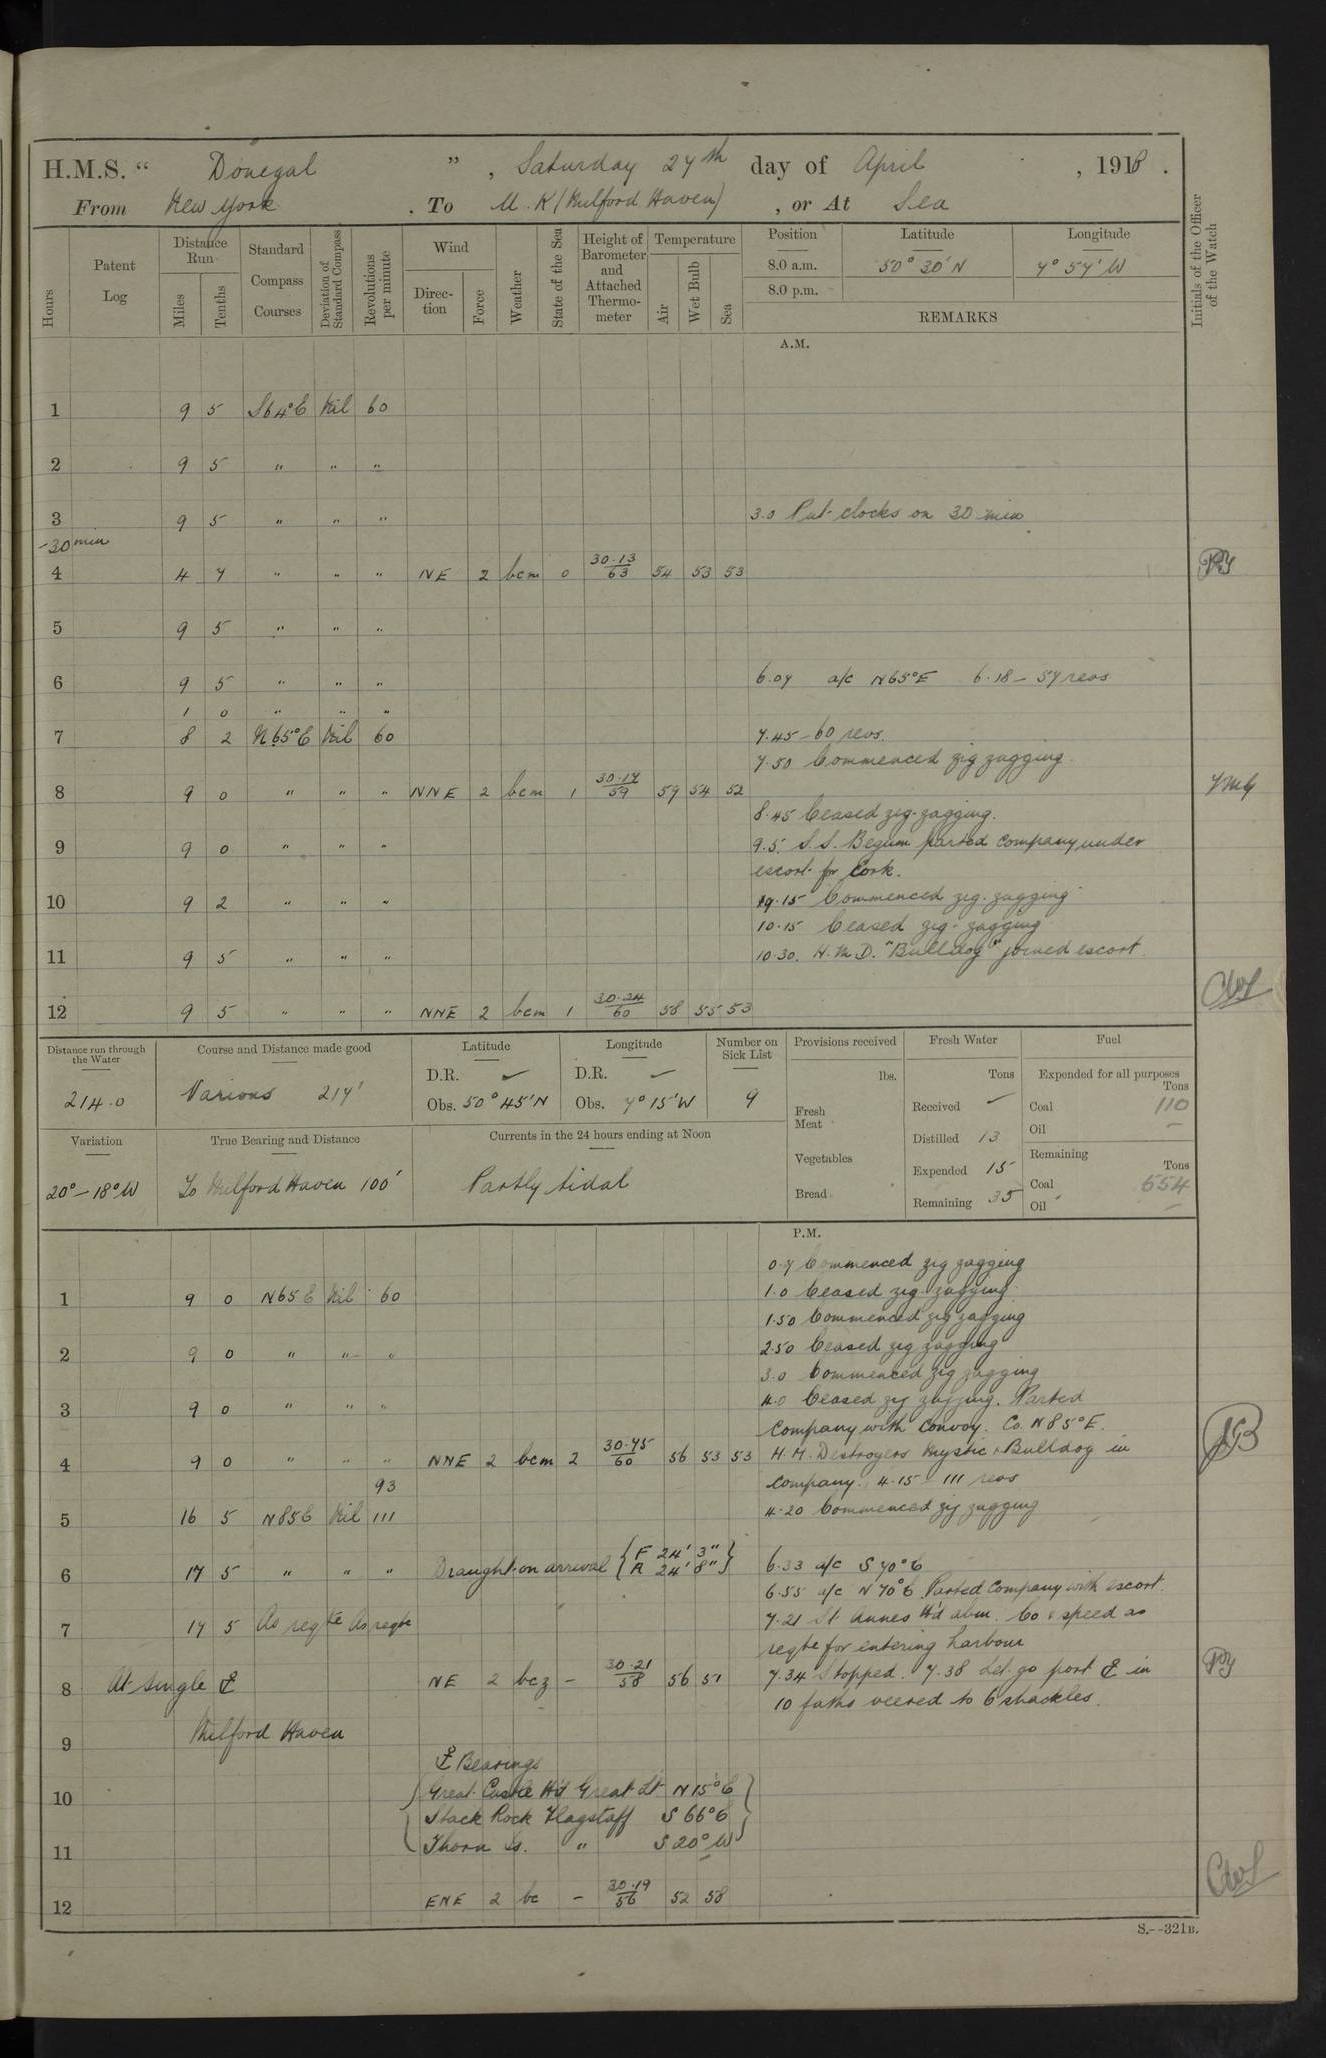 H.M.S. “ Donegal ”, Saturday 27th day of April, 1918.
From New York. To U.K (Milford Haven), or At Sea
Hours Patent Log Distance Run Miles Tenths Standard Compass Courses Deviation of Standard Compass Revolutions per minute Wind Direc-tion Force Weather State of the Sea Height of Barometer and Attached Thermo-meter Temperature Air Wet Bulb Sea Position Latitude Longitude Initials of the Officer of the Watch
8.0 a.m. 50° 30' N 7° 57' W
8.0 p.m.
REMARKS
A.M.
1 9 5 S64°E Nil 60
2 9 5 " " "
3 9 5 " " " 3.0 Put clocks on 30 min
-30 min
4 4 7 " " " NE 2 bcm 0 30.13 63 54 53 53
5 9 5 " " "
6 9 5 " " " 6.07 a/c N65°E 6.18 - 57 revs
1 0 " " "
7 8 2 N65°E Nil 60 7.45 - 60 revs.
7.50 Commenced zig zagging
8 9 0 " " " NNE 2 bcm 1 30.17 59 59 54 52
8.45 Ceased zig-zagging.
9 9 0 " " " 9.5. S.S. Begum parted company under
escort for Cork.
10 9 2 " " " 9.15 Commenced zig-zagging
10.15 Ceased zig-zagging
11 9 5 " " " 10.30. H.M.D. "Bulldog" joined escort
12 9 5 " " " NNE 2 bcm 1 30.24 60 58 55 53
Distance run through the Water Course and Distance made good Latitude Longitude Number on Sick List Provisions received Fresh Water Fuel
214.0 Various 217' D.R. ✓ D.R. ✓ 9 lbs. Tons Expended for all purposes Tons
Obs. 50° 45' N Obs. 7° 15' W Fresh Meat Received ✓ Coal 110
Distilled 13 Oil -
Variation True Bearing and Distance Currents in the 24 hours ending at Noon Vegetables Expended 15 Remaining Tons
20° - 18° W To Milford Haven 100' Partly tidal Bread Remaining 35 Coal 654
Oil -
P.M.
0.7 Commenced zig zagging
1 9 0 N65E Nil 60 1.0 Ceased zig-zagging
1.50 Commenced zig zagging
2 9 0 " " " 2.50 Ceased zig zagging
3.0 Commenced zig zagging
3 9 0 " " " 4.0 Ceased zig zagging. Parted
Company with convoy. Co. N85°E.
4 9 0 " " " NNE 2 bcm 2 30.45 60 56 53 53 H.M. Destroyers Mystic & Bulldog in
93 Company. 4.15 - 111 revs
5 16 5 N85E Nil 111 4.20 Commenced zig zagging
6 17 5 " " " Draught on arrival { F 24' 3" A 24' 8" } 6.33 a/c S70°E
6.55 a/c N70°E Parted Company with escort.
7 17 5 As reqte As reqte 7.21 St Annes Hd abm. Co & speed as
reqte for entering harbour
8 At single ⚓ NE 2 bcz - 30.21 58 56 51 7.34 Stopped. 7.38 Let go port ⚓ in
10 faths veered to 6 shackles.
9 Milford Haven
⚓ Bearings
10 Great Castle Hd Great Lt N15°E
Stack Rock Flagstaff S66°E
11 Thorn Is. " S20°W
12 ENE 2 bc - 30.19 56 52 58
S.--321B.